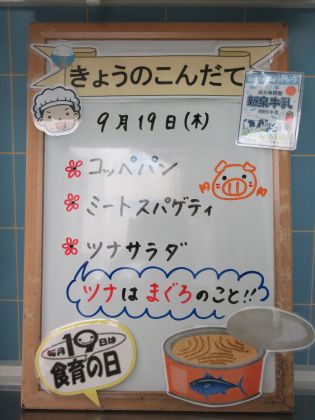 きょうのこんだて
新泉牛乳
9月19日(木)
コッペパン
ミートスパゲティ
ツナサラダ
ツナはまぐろのこと!!
毎月19日は
食育の日